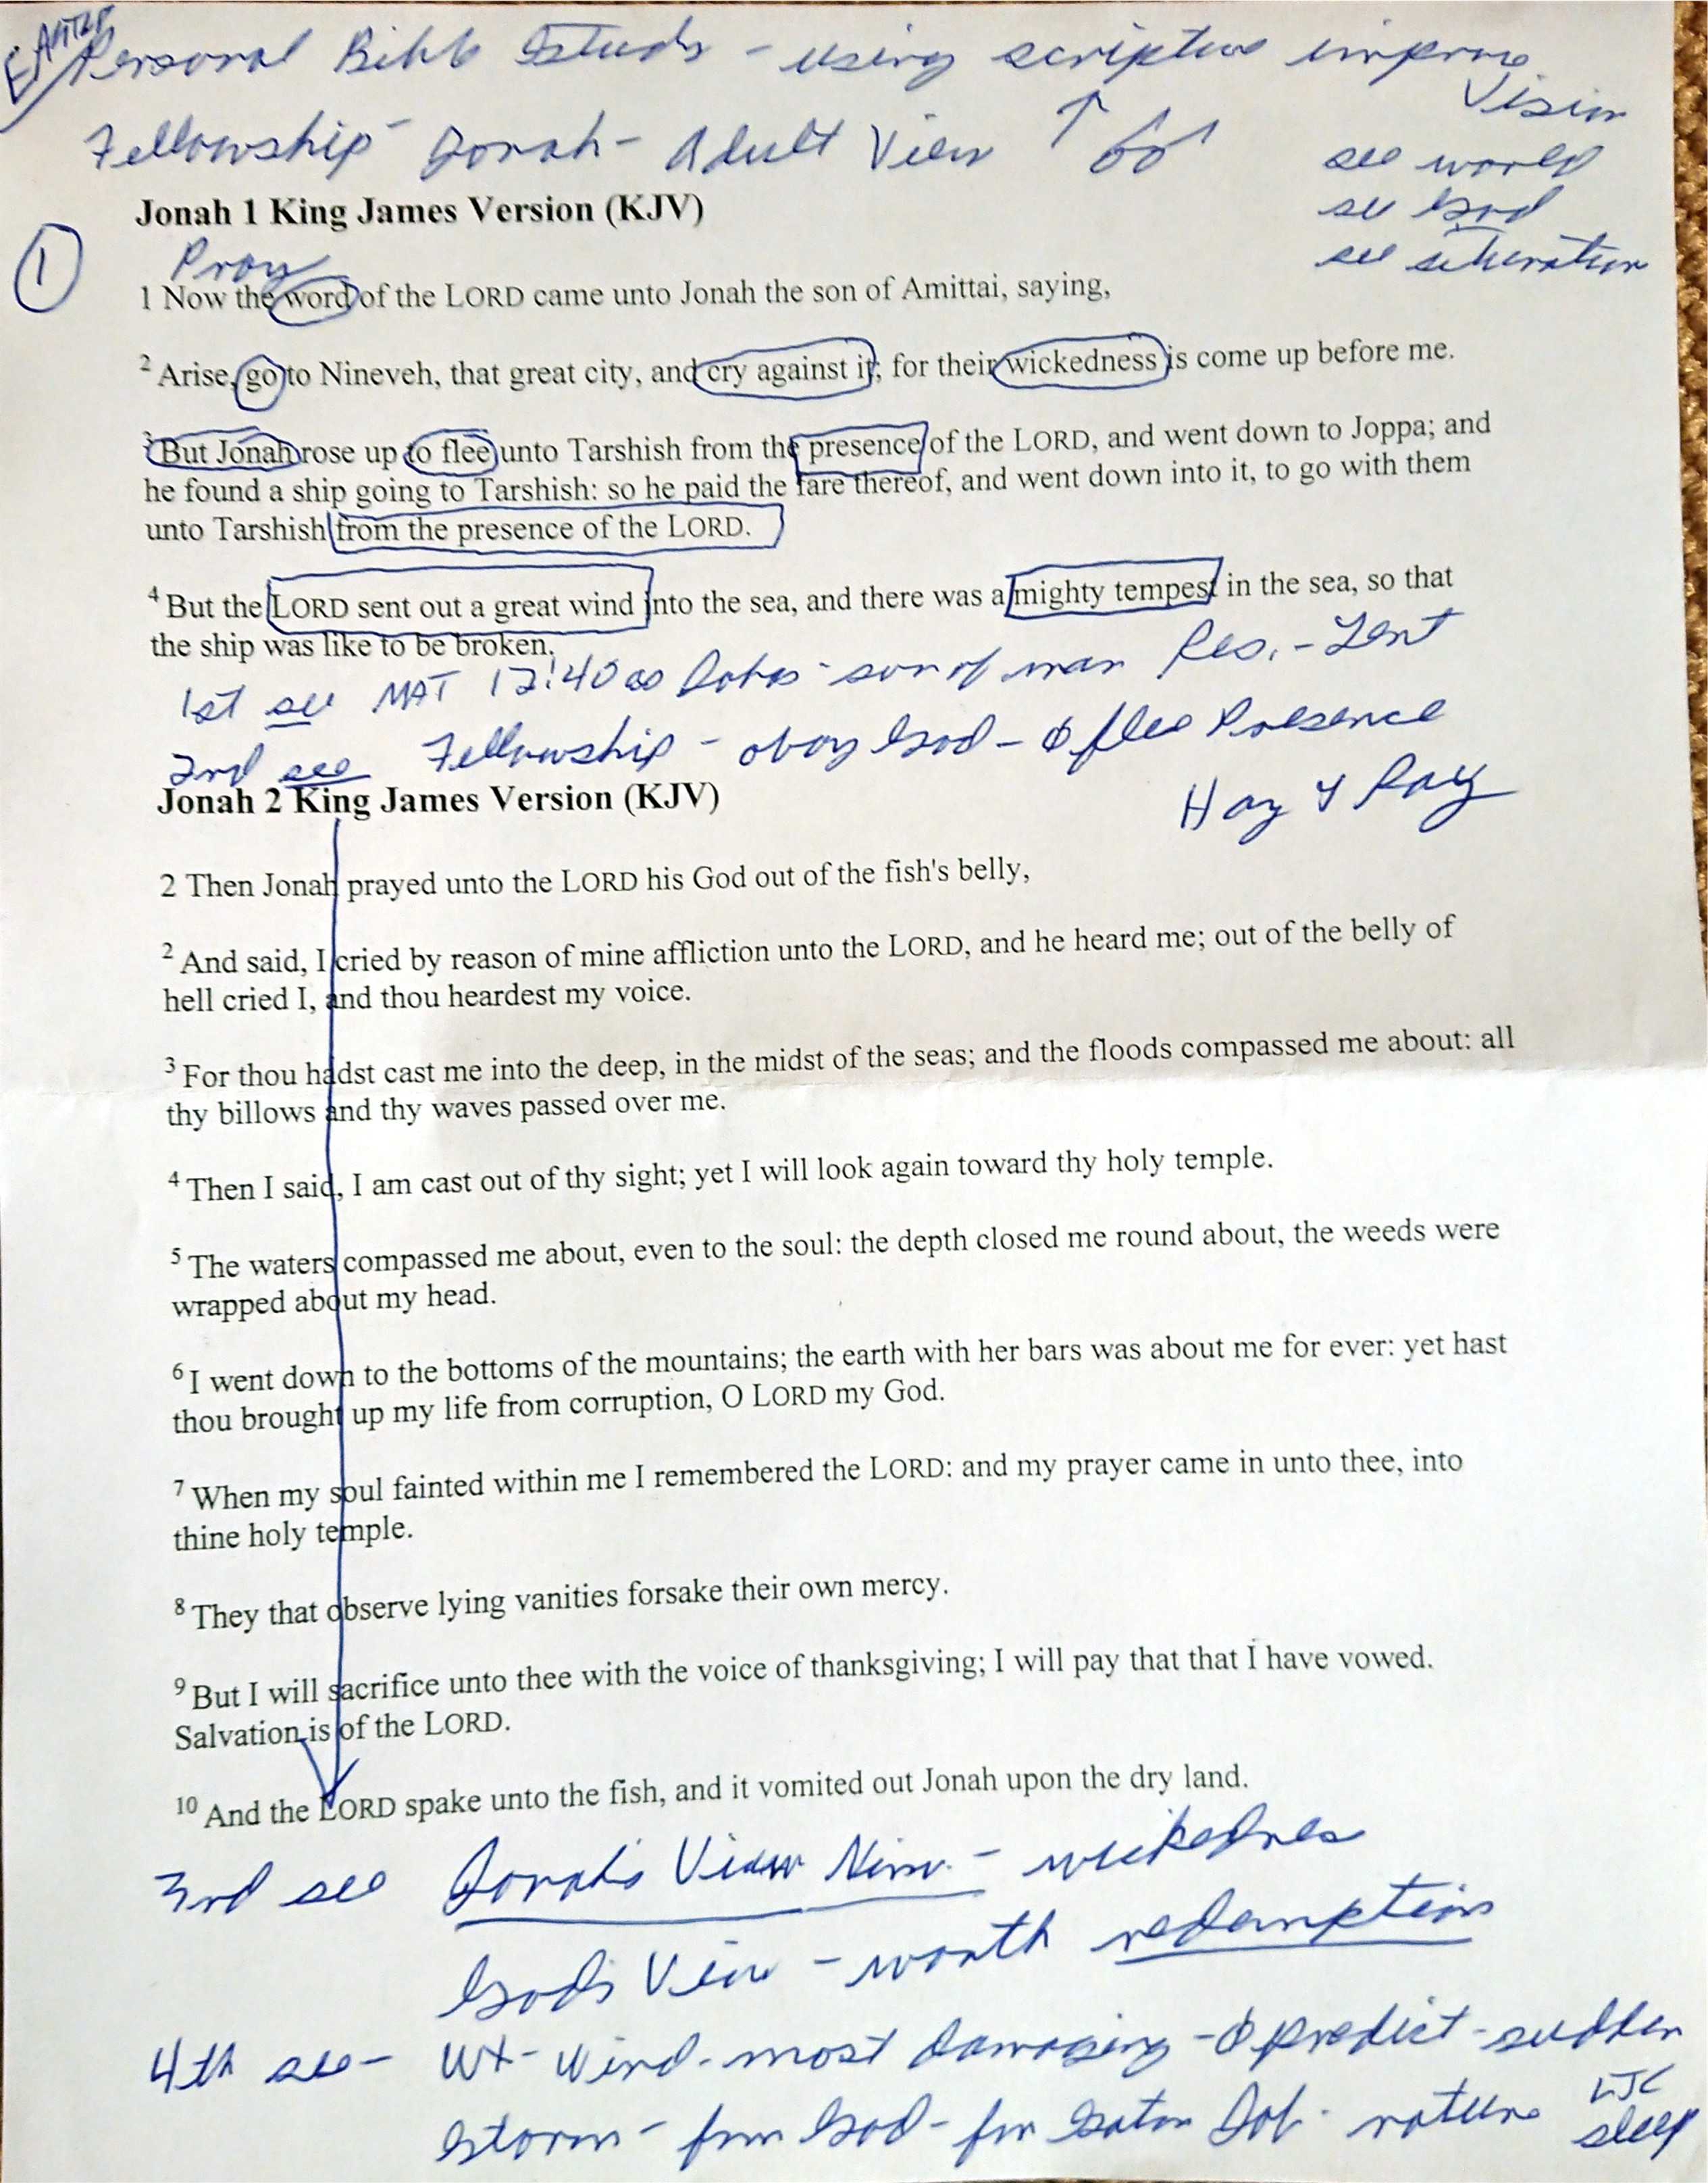 EASTER
Personal Bible Study - using scripture improve
Vision
Fellowship - Jonah - Adult View ↑
see world
see God
see situation
Jonah 1 King James Version (KJV)
1
Pray
1 Now the word of the LORD came unto Jonah the son of Amittai, saying,
2 Arise, go to Nineveh, that great city, and cry against it; for their wickedness is come up before me.
3 But Jonah rose up to flee unto Tarshish from the presence of the LORD, and went down to Joppa; and
he found a ship going to Tarshish: so he paid the fare thereof, and went down into it, to go with them
unto Tarshish from the presence of the LORD.
4 But the LORD sent out a great wind into the sea, and there was a mighty tempest in the sea, so that
the ship was like to be broken.
1st see MAT 12:40 as - son of man Res. - Lent
2nd see Fellowship - obey God - ϕ flee Presence
Hay & Ray
Jonah 2 King James Version (KJV)
2 Then Jonah prayed unto the LORD his God out of the fish's belly,
2 And said, I cried by reason of mine affliction unto the LORD, and he heard me; out of the belly of
hell cried I, and thou heardest my voice.
3 For thou hadst cast me into the deep, in the midst of the seas; and the floods compassed me about: all
thy billows and thy waves passed over me.
4 Then I said, I am cast out of thy sight; yet I will look again toward thy holy temple.
5 The waters compassed me about, even to the soul: the depth closed me round about, the weeds were
wrapped about my head.
6 I went down to the bottoms of the mountains; the earth with her bars was about me for ever: yet hast
thou brought up my life from corruption, O LORD my God.
7 When my soul fainted within me I remembered the LORD: and my prayer came in unto thee, into
thine holy temple.
8 They that observe lying vanities forsake their own mercy.
9 But I will sacrifice unto thee with the voice of thanksgiving; I will pay that that I have vowed.
Salvation is of the LORD.
10 And the LORD spake unto the fish, and it vomited out Jonah upon the dry land.
3rd see Jonah's View Ninv. - wickedness
God's View - worth redemption
4th see - WX - Wind - most damaging - ϕ predict - sudden
storm - from God - from Satan Job - nature LJC
sleep